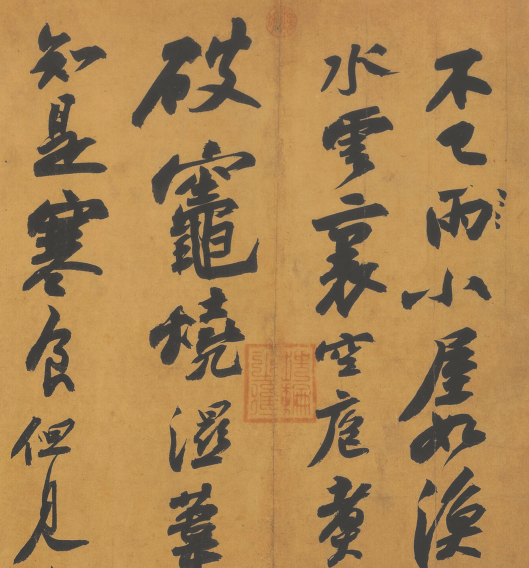 不已雨小屋如漁
水雲裏空庖煮
破竈燒濕葦
知是寒食但見